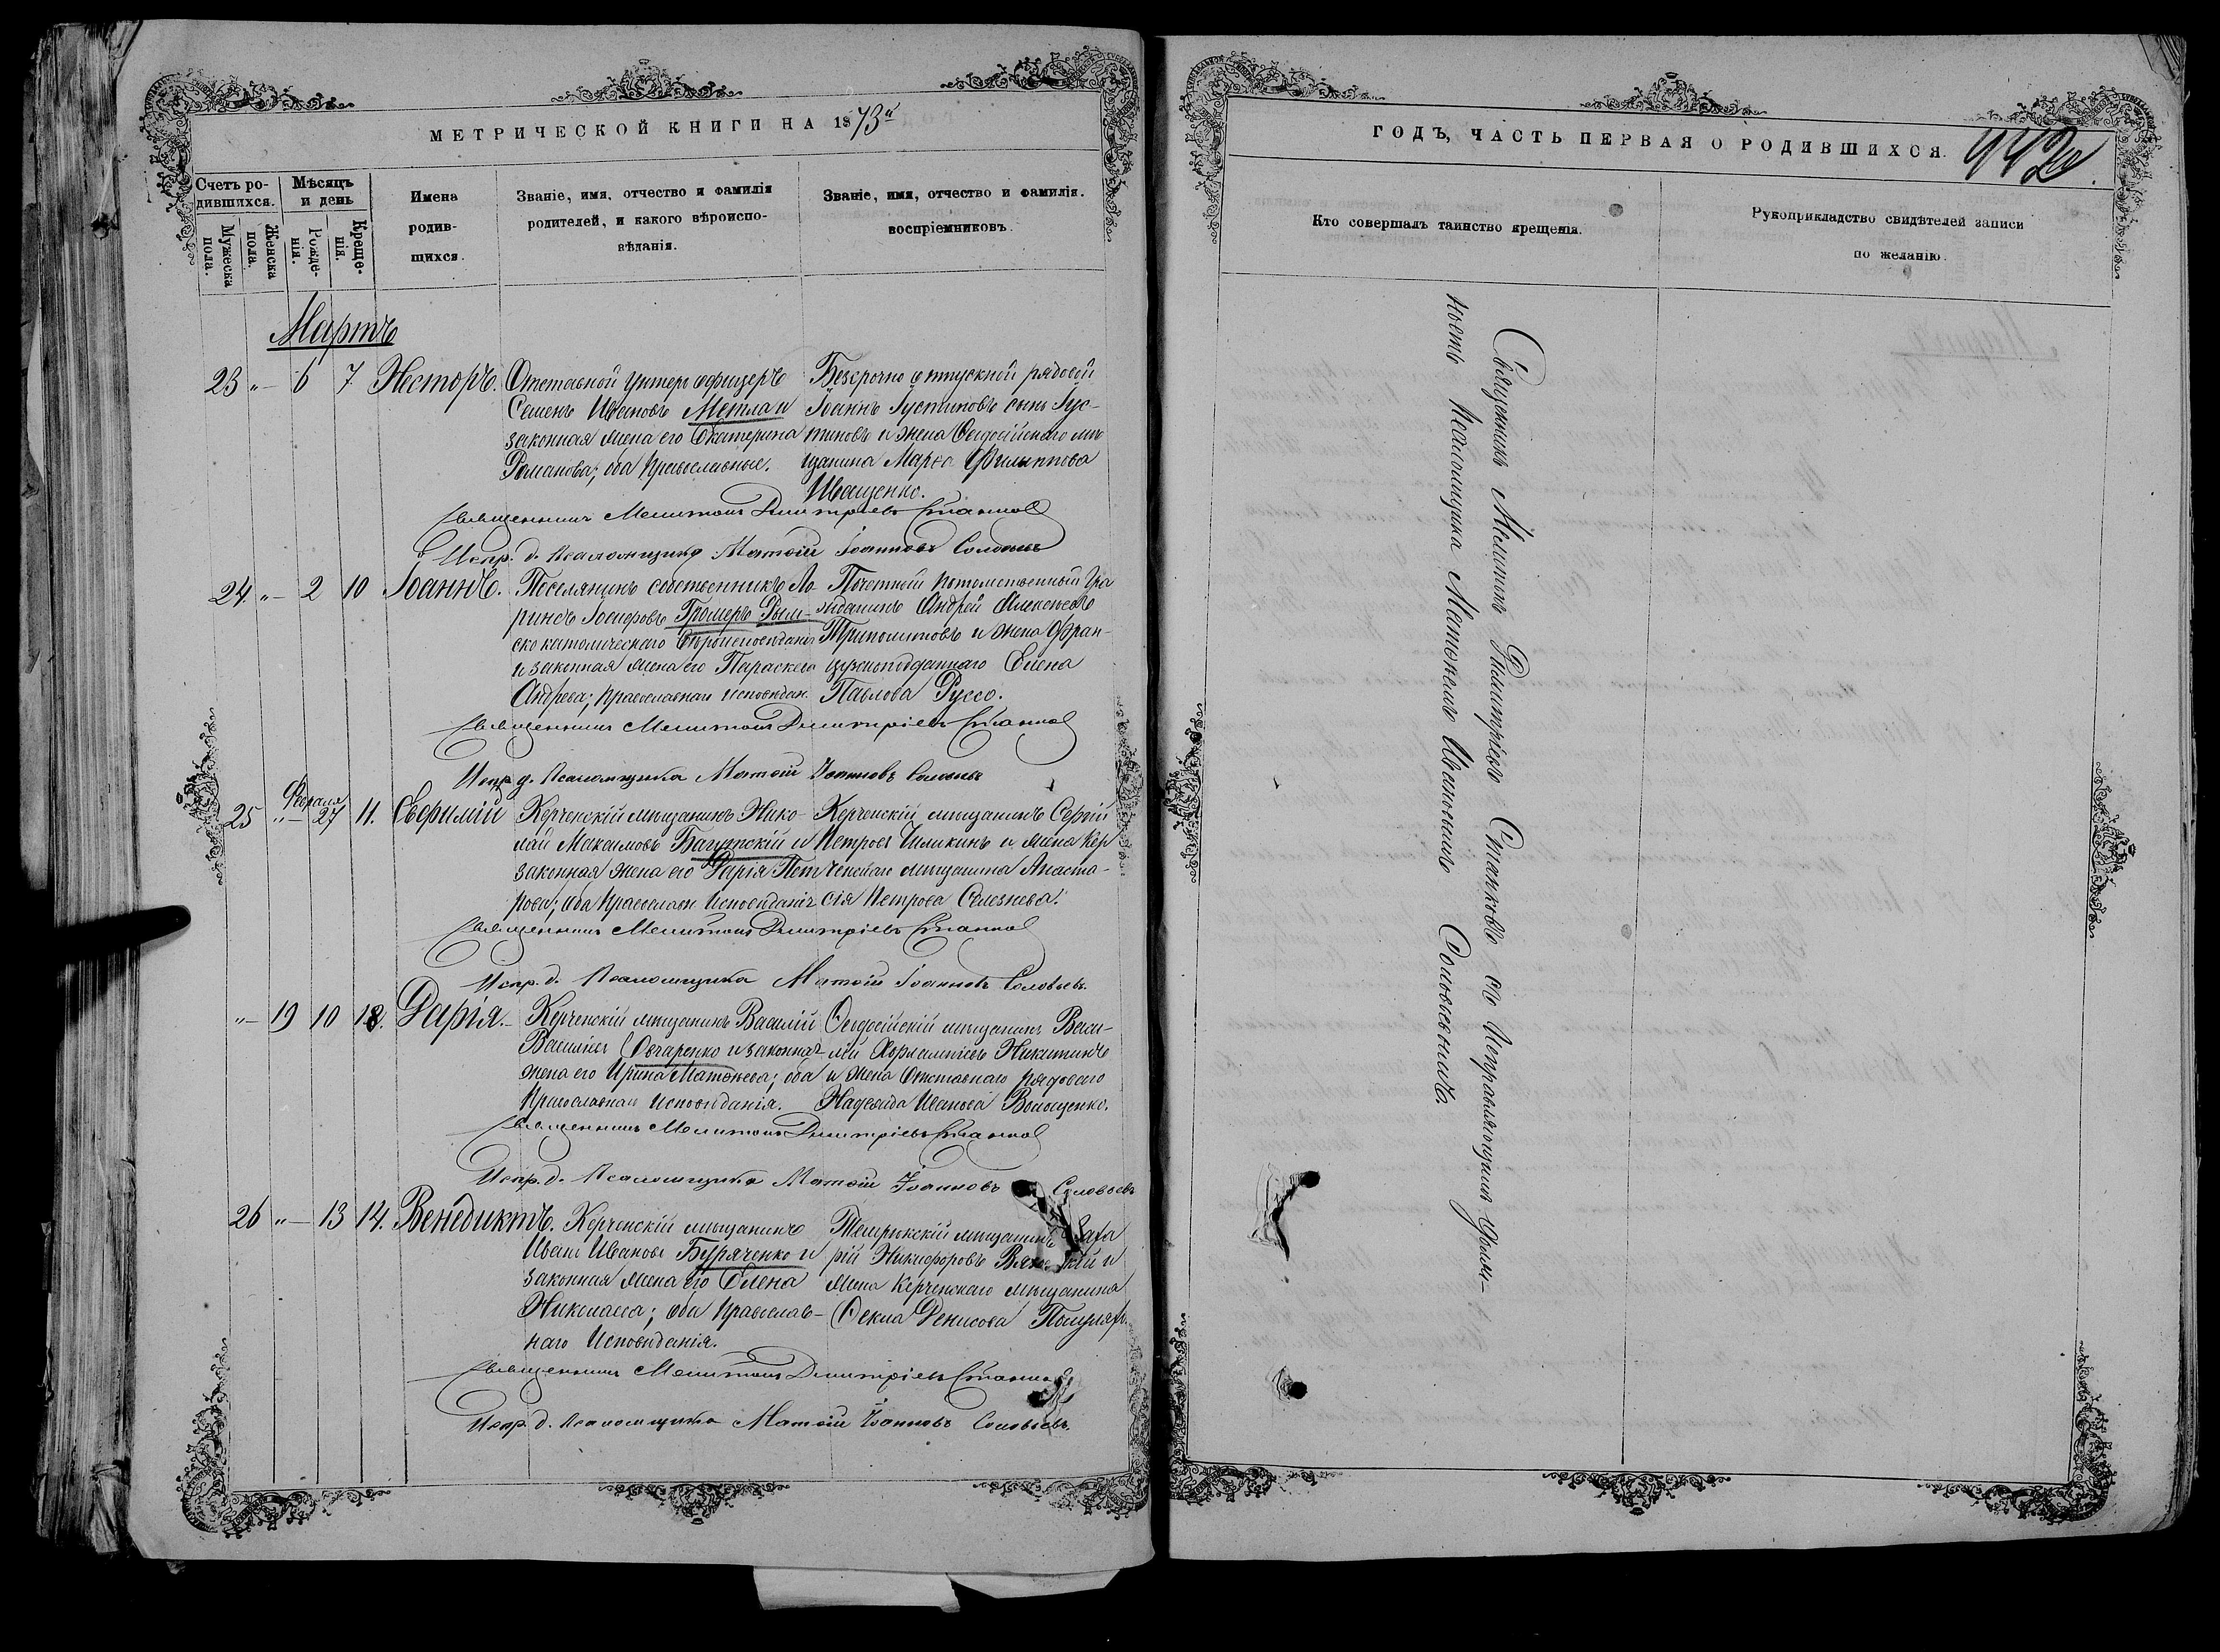 МЕТРИЧЕСКОЙ КНИГИ НА 1873й
Счетъ ро-
дившихся.
Мужеска пола.
Женска пола.
Мѣсяцъ
и день
Рожде-
нія.
Креще-
нія.
Имена
родив-
шихся.
Званіе, имя, отчество и фамилія
родителей, и какого вѣроиспо-
вѣданія.
Званіе, имя, отчество и фамилія.
воспріемниковъ.
Мартъ
23 „ — 6 7 Несторъ.
Отставной унтеръ офицеръ
Семенъ Ивановъ Метла и
законная жена его Екатерина
Романова; оба православные.
Безсрочно отпускной рядовой
Іоаннъ Іустиновъ сынъ Іус-
тиновъ и жена Ѳеодосійскаго мѣ-
щанина Марѳа Филиппова
Иващенко.
Священникъ Мелитонъ Димитріевъ Станковъ
Испр. д. Псаломщика Матѳій Іоанновъ Соловьевъ
24 „ — 2 10 Іоаннъ.
Поселянинъ собственникъ Ло-
ринсъ Іосифовъ Громеръ Рым-
ско католическаго вѣроисповѣданія
и законная жена его Параскева
Андреева; православнаго исповѣдан.
Почетный потомственный гра
жданинъ Андрей Алексѣевъ
Триполитовъ и жена Фран-
цузскоподданнаго Елена
Павлова Руссо.
Священникъ Мелитонъ Димитріевъ Станковъ
Испр д. Псаломщика Матѳій Іоанновъ Соловьевъ
25 „ — Февраля 27 11. Евфимій
Керченскій мѣщанинъ Нико-
лай Максимовъ Багутскій и
законная жена его Дарія Пет
рова; оба православн исповѣданія
Керченскій мѣщанинъ Сергій
Петровъ Чишкинъ и жена Кер
ченскаго мѣщанина Анаста-
сія Петрова Селезнева.
Священникъ Мелитонъ Димитріевъ Станковъ
Испр. д. Псаломщика Матѳій Іоанновъ Соловьевъ.
„ — 19 10 18. Дарія.
Керченскій мѣщанинъ Василій
Васильевъ Овчаренко и законная
жена его Ирина Матѳеева; оба
православнаго исповѣданія.
Ѳеодосійскій мѣщанинъ Васи-
лій Харлампіевъ Никитинъ
и жена отставнаго рядоваго
Надежда Иванова Волощенко.
Священникъ Мелитонъ Димитріевъ Станковъ
Испр. д. Псаломщика Матѳій Іоанновъ Соловьевъ
26 „ — 13 14. Венедиктъ.
Керченскій мѣщанинъ
Иванъ Ивановъ Буряченко и
законная жена его Елена
Николаева; оба православ-
наго исповѣданія.
Темрюкскій мѣщанинъ Заха
рій Никифоровъ и
жена Керченскаго мѣщанина
Ѳекла Денисова
Священникъ Мелитонъ Димитріевъ Станковъ
Испр. д. Псаломщика Матѳій Іоанновъ Соловьевъ.
ГОДЪ, ЧАСТЬ ПЕРВАЯ О РОДИВШИХСЯ.
442
Кто совершалъ таинство крещенія.
Рукоприкладство свидѣтелей записи
по желанію.
Священникъ Мелитонъ Димитріевъ Станковъ съ Исправляющимъ долж-
ность Псаломщика Матѳеемъ Ивановымъ Соловьевымъ.